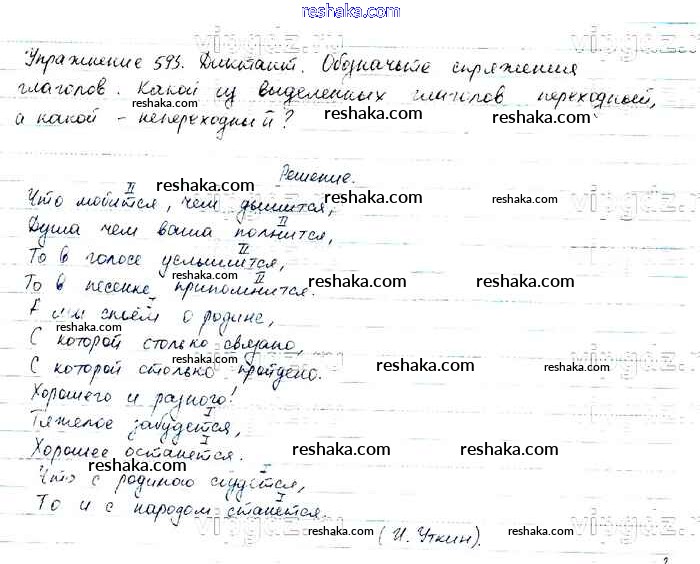 reshaka.com
Упражнение 593. Диктант. Обозначьте спряжения
глаголов. Какой из выделенных глаголов переходный,
reshaka.com reshaka.com reshaka.com
а какой - непереходный?
Решение.
reshaka.com reshaka.com reshaka.com
II
Что любится, чем дышится,
II
Душа чем ваша полнится,
reshaka.com reshaka.com
II
То в голосе услышится,
reshaka.com reshaka.com reshaka.com
II
То в песенке припомнится.
I
А мы споём о родине,
reshaka.com reshaka.com reshaka.com
С которой столько связано,
С которой столько пройдено.
reshaka.com reshaka.com reshaka.com
Хорошего и разного!
I
Тяжелое забудется,
I
Хорошее останется.
reshaka.com reshaka.com reshaka.com
I
Что с родиною сбудется,
I
То и с народом станется.
reshaka.com reshaka.com reshaka.com
(И. Уткин).